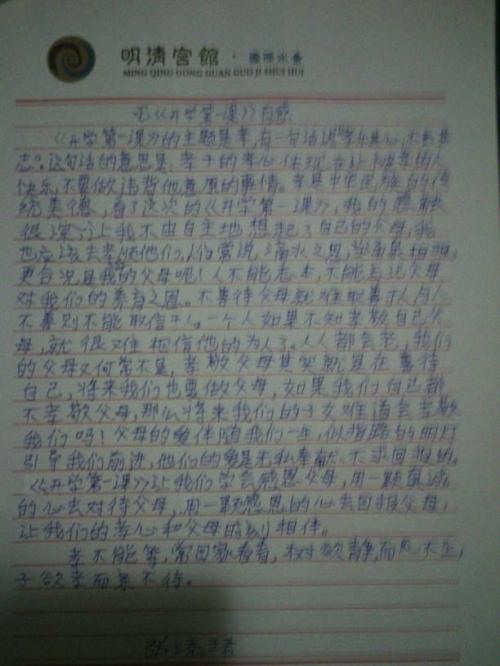 明清宫館·國際水會
MING QING GONG GUAN GUO JI SHUI HUI
观《开学第一课》有感
《开学第一课》的主题是孝,有一句话说"孝子其心,不违其
志"。这句话的意思是:孝子的孝心体现在让
快乐,不要做违背他意愿的事情。孝是中华民族的传
统美德,看了这次的《开学第一课》,我的感触
很深,让我不由自主地想起了自己的父母,我
也应该去孝他们,人们常说:滴水之恩,当涌泉相报,
更合况是我的父母呢!人不能忘本,不能忘记父母
对我们的养育之恩。不善待父母就难取善于人,与人
不善则不能取信于人。一个人如果不知孝敬自己父
母,就很又住相信他的为人了。人人都会老,我们
的父母又何常不是,孝敬父母其实就是在善待
自己,将来我们也要做父母,如果我们自己都
不孝敬父母,那么将来我们的子女难道会孝敬
我们吗!父母的爱伴随我们一生,似指路的明灯
引导我们前进,他们的爱是无私奉献、不求回报的。
《开学第一课》让我们学会感恩父母,用一颗真诚
的心去对待父母,用一颗感恩的心去回报父母,
让我们的孝心和父母时刻相伴。
孝不能等,常回家看看,树欲静,而风不止,
子欲孝而亲不待。